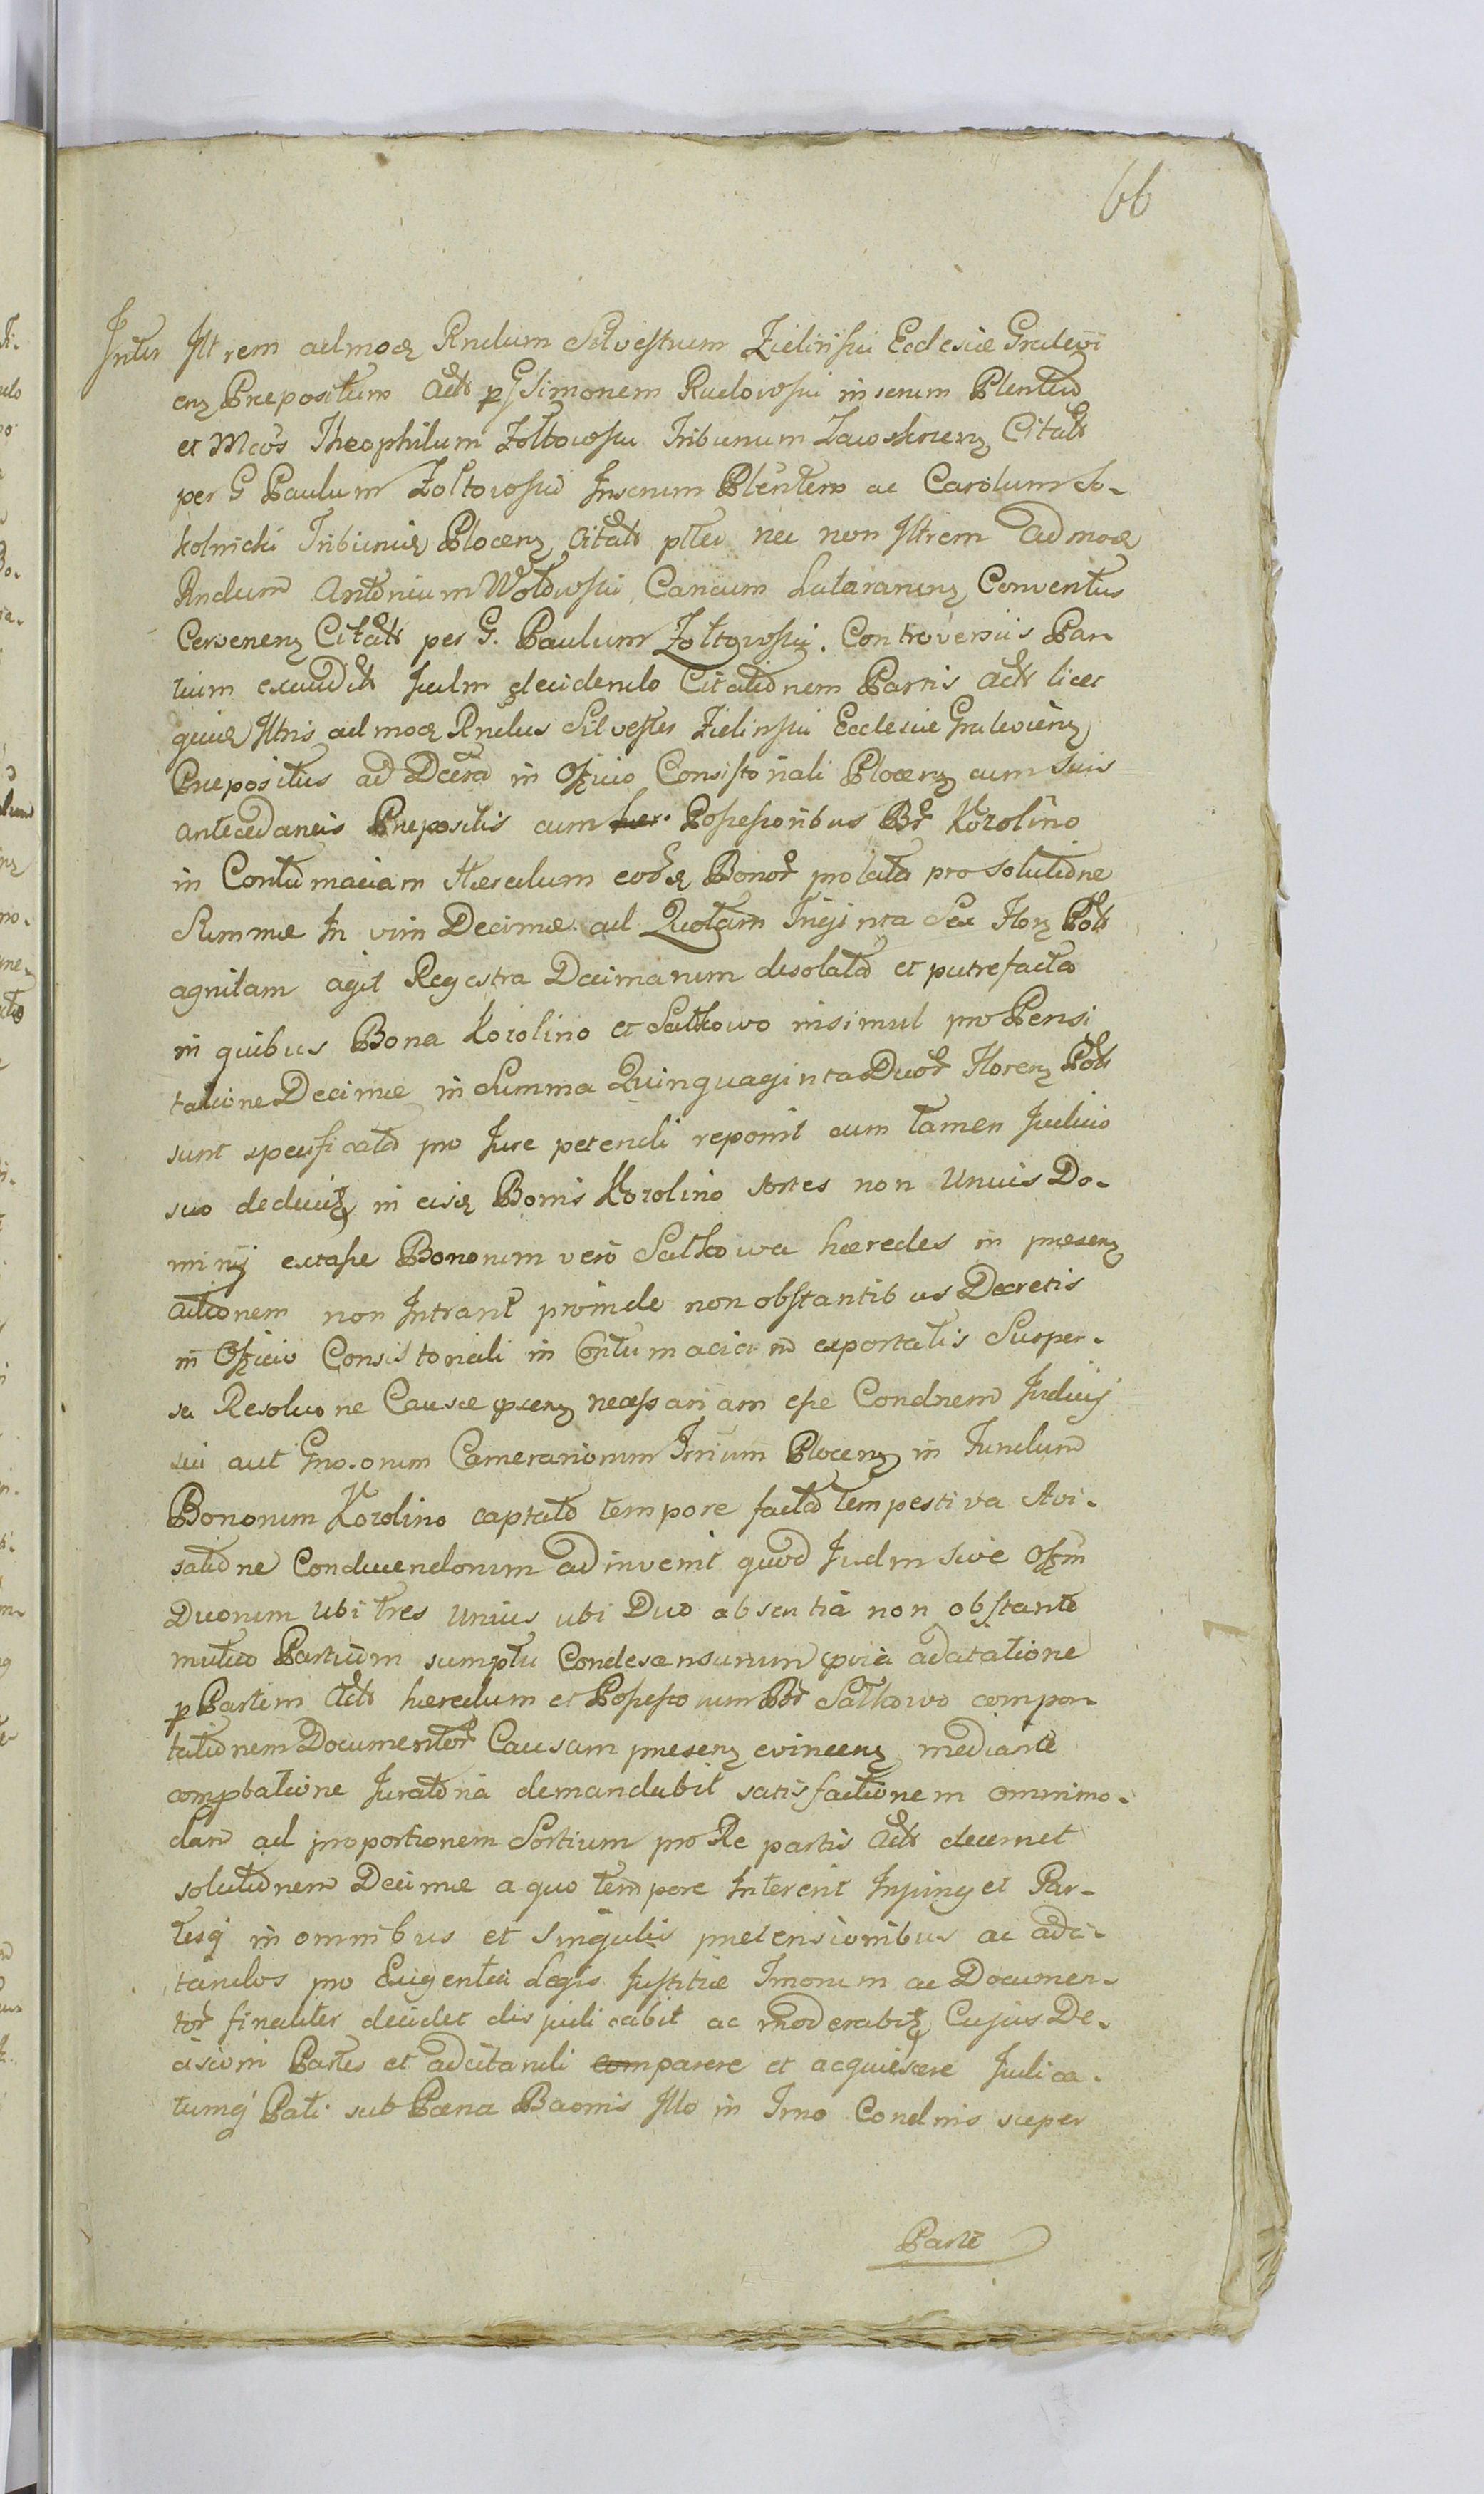 66
Inter Iltrem admoq Rndum Silvestrum Zielinski Ecclesiæ Gralevi
enz Præpositum Act p G Simonem Rudowski inserum Plentem
et Mcos Theophilum Zołtowski Tribunum Zawskrzenz Citat
per G Paulum Zołtowski Inserum Plentem ac Carolum So-
kolnicki Tribunum Plocenz Citat pltem nec non Iltrem Admoq
Rndum Antonium Wołowski Cancum Lateranenz Conventus
Cervenenz Citat per G. Paulum Zołtowski. Controversiis Par
tium exauditis Judm decidendo Citationem Partis Act licet
quia Iltris admoq Rndus Silvester Zielinski Ecclesiæ Graleviens
Præpositus ad Dcera in Officio Consistoriali Plocenz cum suis
antecedaneis Præpositis cum her. Possessoribus Br Kozolino
in Contumaciam Hæredum eorq Bonor prolata pro solutione
Summæ In vim Decimæ ad Quotam Triginta Sex Flor Pol
agnitam agit Regestra Decimarum desolata et putrefacta
in quibus Bona Kozolino et Satkowo insimul pro Pensi
tatione Decimæ in Summa Quinquaginta Duor Florenz Pol
sunt specificata pro Jure petendi reponit cum tamen Judicio
suo deducitz in eisq Bonis Kozolino sortes non Unius Do-
minij extasse Bonorum vero Satkowa hæredes in præsenz
Actionem non Intrant proinde non obstantibus Decretis
in Officio Consistoriali in Contumaciam exportatis Suspen-
sa Resoluone Causæ præsenz necessariam esse Condnem Judicij
sui aut Gnosorum Camerariorum Trrium Plocenz in Fundum
Bonorum Kozolino captato tempore facta tempestiva Avi-
satione Conducendorum adinvenit quod Judm sive Offm
Duorum ubi tres unius ubi Duo absentia non obstante
mutuo Partium sumptu Condescensurum prvia adcitatione
p Partem Act hæredum et Possessorum Br Satkowo compor
tationem Documentor Causam præsenz evincenz mediante
comprobatione Juratoria demandabit satisfactionem omnimo-
dam ad proportionem Sortium pro Re partis Act decernet
solutionem Decimæ a quo tempore Intererit Injunget Par-
tesq in omnibus et singulis prætensionibus ac adci-
tandos pro Exigentia Legis Justitiæ Tmorum ac Documen-
tor finaliter decidet disjudicabit ac moderabitz Cujus De-
cisioni Partes et adcitandi comparere et acquiescere Judica-
tumq Pati sub Pæna Baonis Illo in Trno Condnis super
Parte